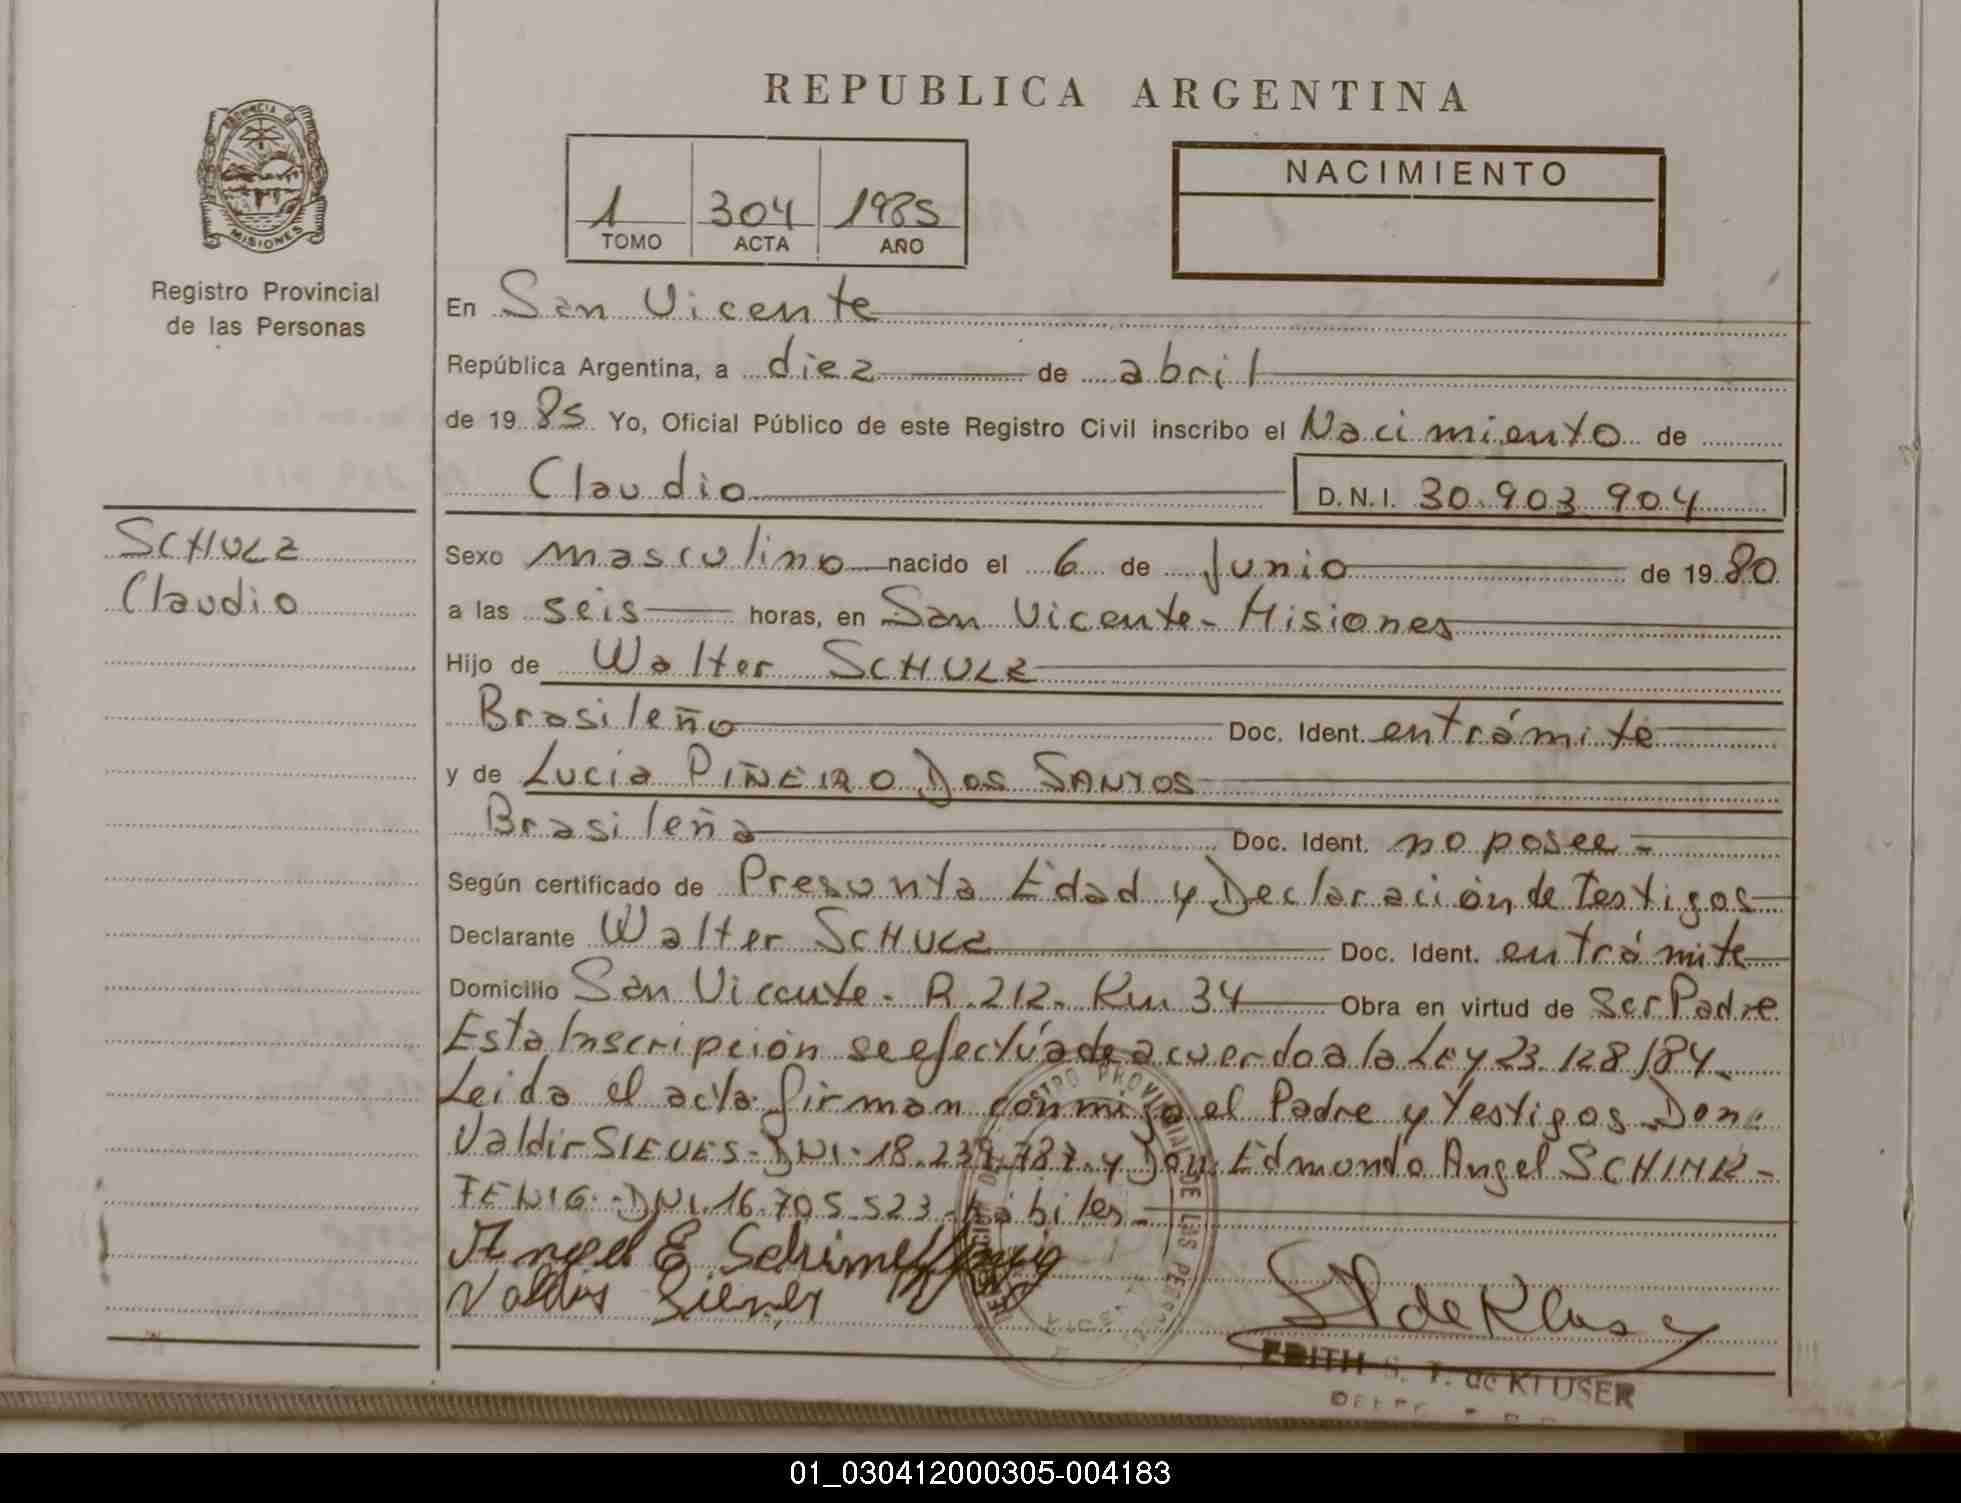 REPUBLICA ARGENTINA
PROVINCIA DE MISIONES
Registro Provincial
de las Personas
1 304 1985
TOMO ACTA AÑO
NACIMIENTO
En San Vicente
República Argentina, a diez de abril
de 1985 Yo, Oficial Público de este Registro Civil inscribo el Nacimiento de
Claudio D.N.I. 30.903.904
SCHULZ
Claudio
Sexo masculino nacido el 6 de Junio de 1980
a las seis horas, en San Vicente - Misiones
Hijo de Walter SCHULZ
Brasileño Doc. Ident. entrámite
y de Lucia PIÑEIRO DOS SANTOS
Brasileña Doc. Ident. no posee -
Según certificado de Presunta Edad y Declaración de Testigos
Declarante Walter SCHULZ Doc. Ident. entrámite
Domicilio San Vicente - R.212 - Km 34 Obra en virtud de Ser Padre
Esta Inscripción se efectúa de acuerdo a la Ley 23.128/84.
Leida el acta firman conmigo el Padre y Testigos Don:
Valdir SIEVES - DNI - 18.239.787 y Don: Edmundo Angel SCHIMK-
FENIG - DNI. 16.705.523 - hábiles -
Angel E Schimelfenig
Valdir Sieves
S T de Kluser
EDITH S. T. de KLUSER
01_030412000305-004183